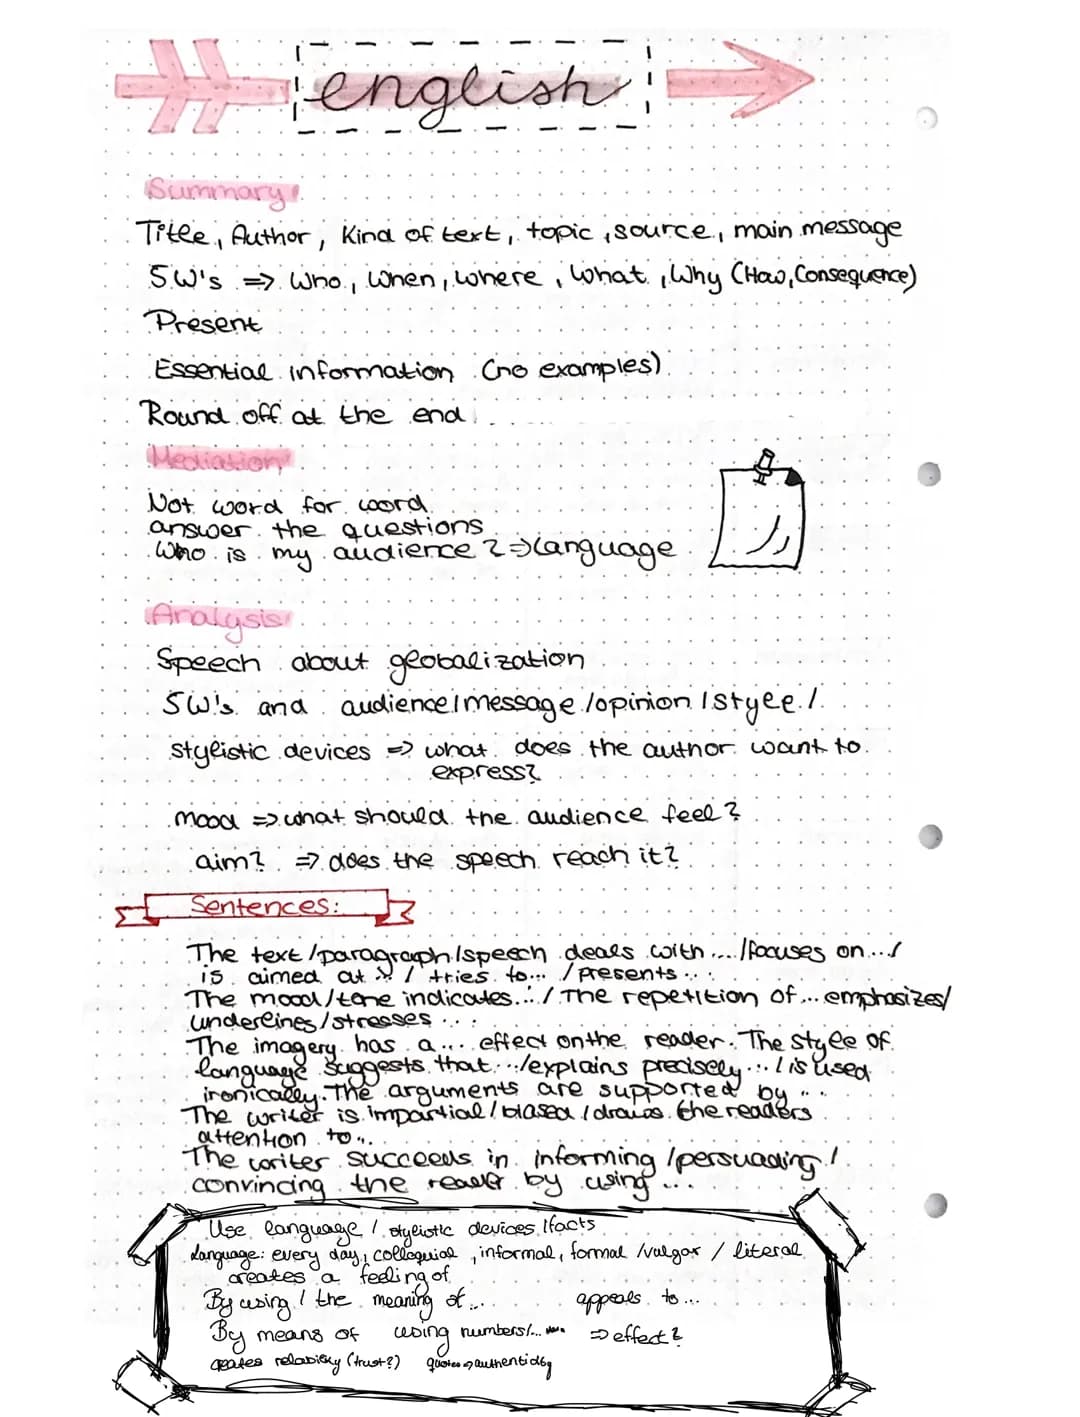 english
Summary
Title, Author, Kind of text, topic, source, main message
5W's => Who, When, Where, What, Why (How, Consequence)
Present
Essential information (no examples)
Round off at the end
Mediation
Not word for word
answer the questions
Who is my audience? => language
Analysis
Speech about globalization
5W's and audience/message/opinion/style/
stylistic devices => what does the author want to
express?
mood => what should the audience feel?
aim? => does the speech reach it?
Sentences:
The text/paragraph/speech deals with .... /focuses on.../
is aimed at / tries to... /presents...
The mood/tone indicates.../The repetition of ... emphasizes/
underlines/stresses ...
The imagery has a .... effect on the reader. The style of
language suggests that.../explains precisely.../is used
ironically. The arguments are supported by ...
The writer is impartial/biased/draws the readers
attention to...
The writer succeeds in informing /persuading/
convincing the reader by using ...
Use language / stylistic devices/facts
Language: every day, colloquial, informal, formal /vulgar / literal
creates a feeling of
By using / the meaning of... appeals to ...
By means of using numbers/... => effect?
creates (trust?) quotes =>